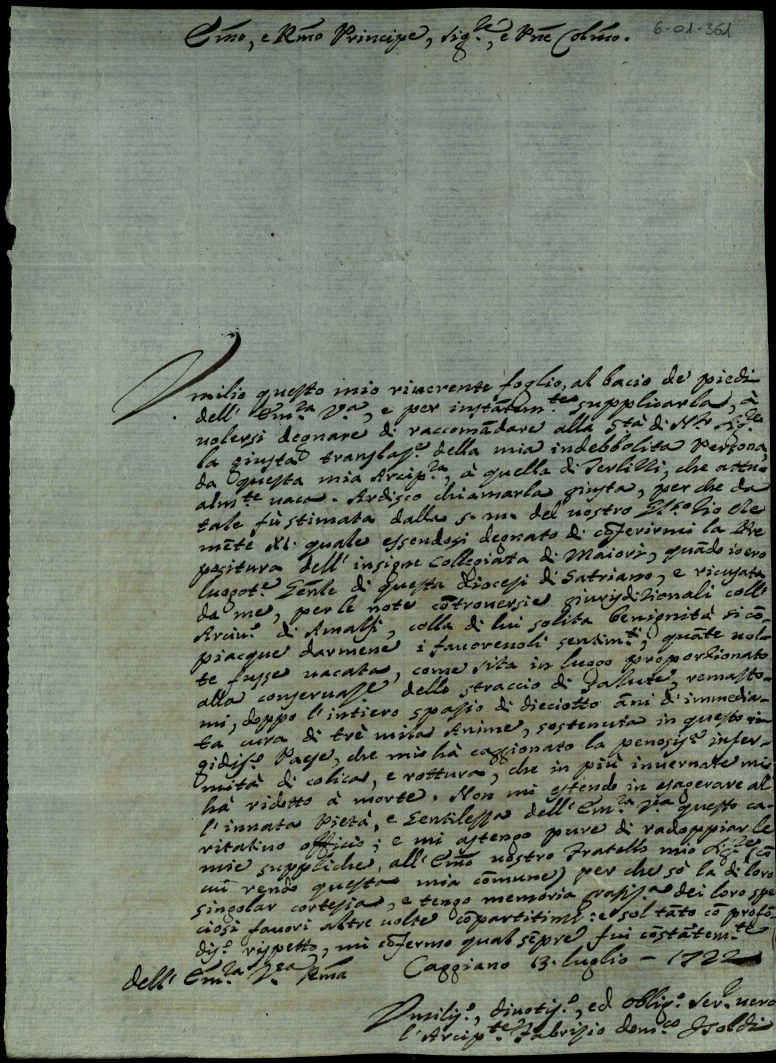 6-01-361
Emo, e Rmo Principe, Sig.re, e Pne Colmo.
Vmilio questo mio riuerente foglio, al bacio de' piedi
dell' Em.za V.ra, e per instãtem.te supplicarla, à
uolersi degnare di raccomãdare alla S.tà di N.ro Sig.re
la giusta translaz.e della mia indebbolita Persona,
da questa mia Arcip.ra, à quella di Terlizzi, che attu=
alm.te uaca. Ardisco chiamarla giusta, perche da
tale fù stimata dalla s. m. del uostro Zio Cle
mẽte XI. quale essendosi degnato di cõferirmi la Pre
positura dell' insigne Collegiata di Maiori, quãdo io ero
luogot.e Gen̄le di questa Diocesi di Satriano, e ricusata
da me, per le note cõtrouersie giurisdizionali coll'
Arciu.o di Amalfi, colla di lui solita benignità si cõ-
piacque darmene i fauoreuoli sentim.ti, quãte uol-
te fusse uacata, come sita in luogo proporzionato
alla conseruaz.e dello straccio di salute, remasto=
mi, doppo l'intiero spazio di dieciotto ãni d'immedia-
ta cura di trè mila Anime, sostenuta in questo ri=
gidis.o Paese, che mi hà caggionato la penosis.a infer-
mità di colica, e rottura, che in più inuernate mi
hà ridotto à morte. Non mi estendo in esagerare al
l'innata Pietà, e Gentilezza dell' Em.za V.ra questo ca-
ritatiuo officio; e mi astengo pure di radoppiar le
mie suppliche, all' Emo uostro Fratello mio Sig.re (cõ
cui rendo questa mia cõmune) perche sò la di loro
singolar cortesia, e tengo memoria dei loro spe
ciosi fauori altre uolte cõpartitimi: e sol tãto cõ profõ-
dis.o rispetto, mi cõfermo qual sẽpre fui costãtem.te
dell' Em.za V.ra Rma Caggiano 13. luglio - 1722
Vmilis.o, diuotis.o, ed oblig.o ser.re uero
l'Arcip.te Fabrizio Dom.co Isoldi